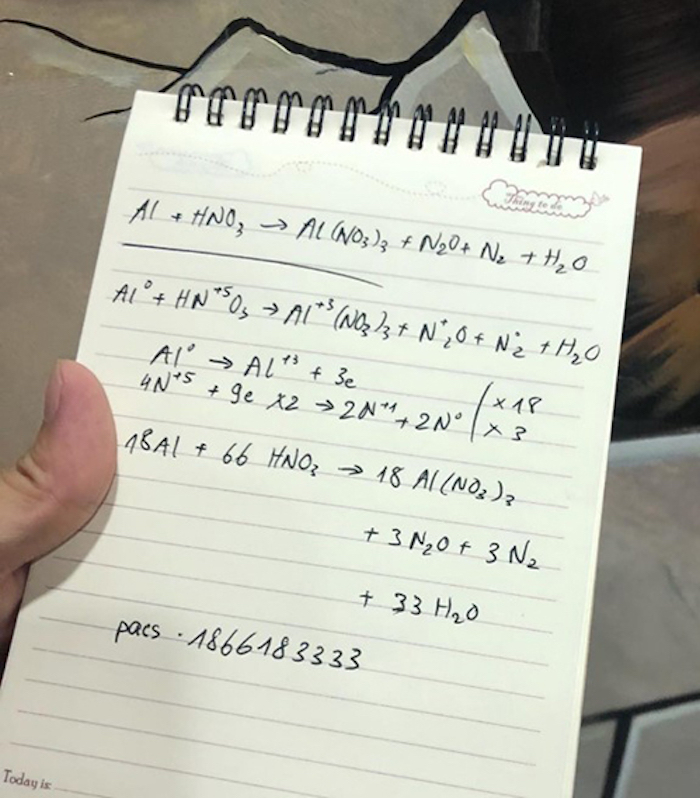 Thing to do
Al + HNO₃ → Al(NO₃)₃ + N₂O + N₂ + H₂O
Al⁰ + HN⁺⁵O₃ → Al⁺³(NO₃)₃ + N⁺₂O + N°₂ + H₂O
Al⁰ → Al⁺³ + 3e | x 18
4N⁺⁵ + 9e x2 → 2N⁺¹ + 2N⁰ | x 3
18Al + 66 HNO₃ → 18 Al(NO₃)₃
+ 3N₂O + 3 N₂
+ 33 H₂O
pacs . 1866183333
Today is: